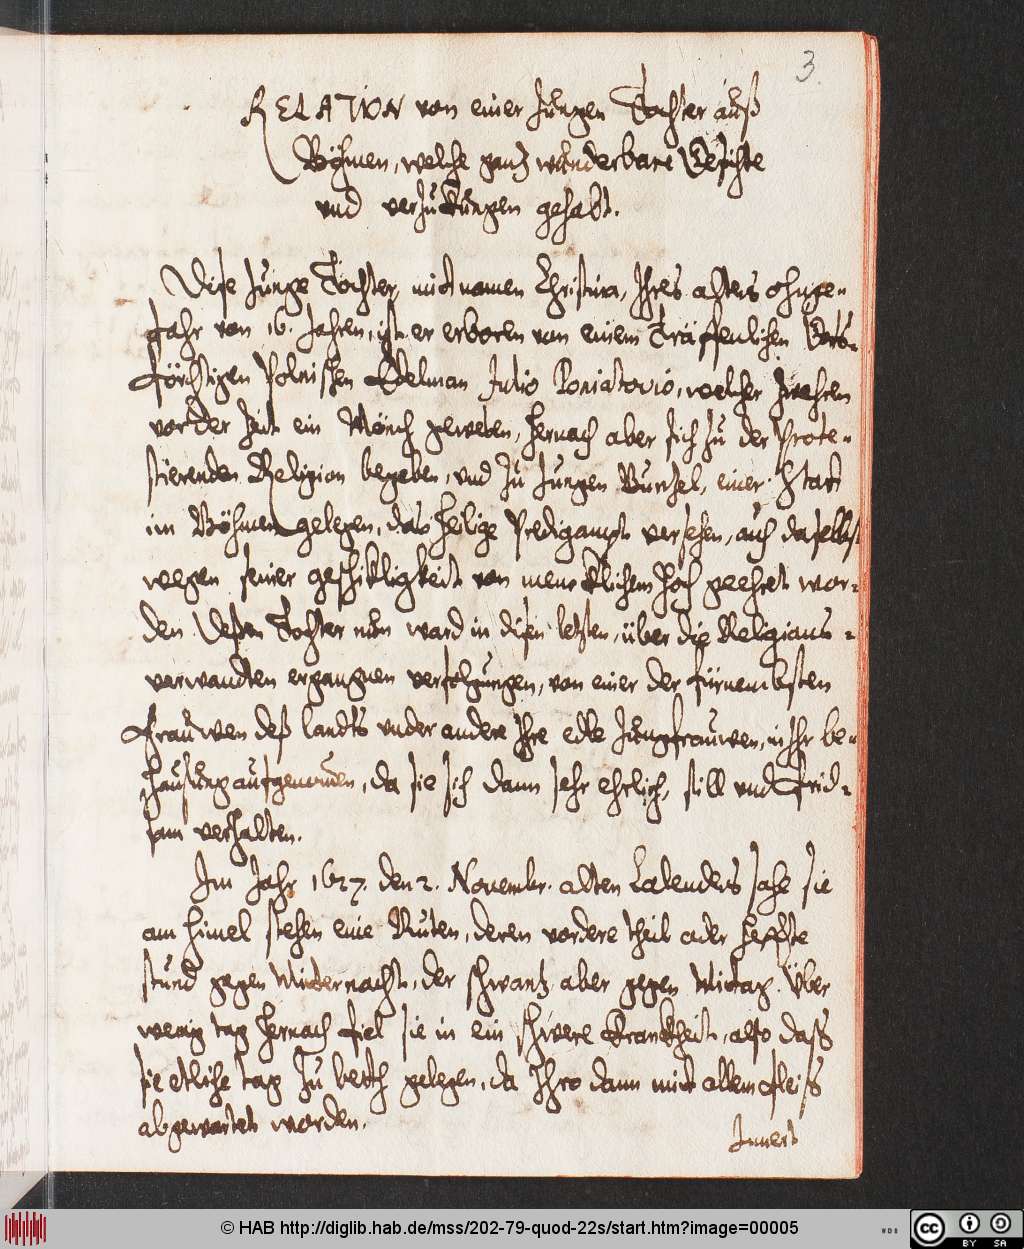 3.
RELATION von einer Jungen Tochter auß
Böhmen, welche gantz wunderbare Gesichte
vnd verzukungen gehabt.
Dise Junge Tochter, mit namen Christina, Ihres alters ohnge-
fahr von 16. Jahren, ist er erboren von einem Träffenlichen Gots-
förchtigen Polnischen Edelman Julio Poniatovio, welcher zwehren
vor der Zeit ein Mönch gewesen, hernach aber sich zu der Prote-
stierenden Religion begeben, vnd zu Jungen Bunzel, einer Statt
im Böhmen gelegen, das heilige Predigampt versehen, auch daselbst
wegen seiner geschikligkeit von menklichem hoch geehret wor-
den. Deßen Tochter nun ward in disen letsten, über die Religions-
verwandten ergangnen verfolgungen, von einer der fürnembsten
Frauwen deß landts vnder andere Ihre edle Jungfrauwen, in Ihr be-
hausung aufgenomen, da sie sich dann sehr ehrlich, still vnd frid-
sam verhalten.
Im Jahr 1627. den 2. Novembr. alten Calenders sahe sie
am himel stehen eine Ruten, deren vordere theil oder heffte
stund gegen Miternacht, der schwantz aber gegen Mitag. Über
wenig tag hernach fiel sie in ein schwere krankheit, also daß
sie etliche tag zu beth gelegen, da Ihro dann mit allem fleiß
abgewartet worden.
Innert
© HAB http://diglib.hab.de/mss/202-79-quod-22s/start.htm?image=00005
WDB
cc BY SA